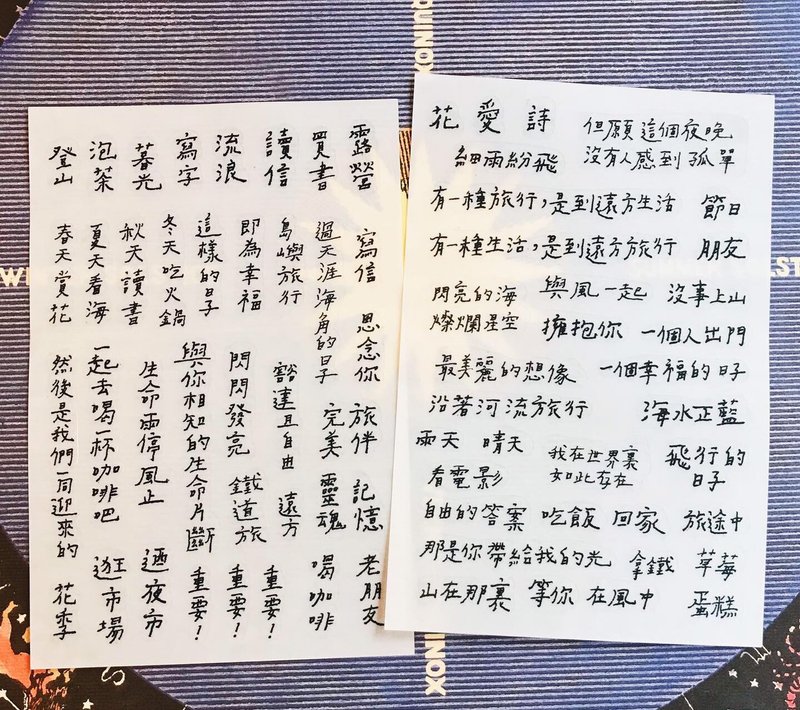 露營
買書
讀信
流浪
寫字
暮光
泡茶
登山
寫信
過天涯海角的日子
島嶼旅行
即為幸福
這樣的日子
冬天吃火鍋
秋天讀書
夏天看海
春天賞花
思念你
旅伴
記憶
老朋友
完美
靈魂
喝咖啡
豁達且自由
遠方
重要！
閃閃發亮
鐵道旅
重要！
與你相知的生命片斷
重要！
生命雨停風止
迺夜市
一起去喝一杯咖啡吧
逛市場
然後是我們一同迎來的
花季
花 愛 詩
但願這個夜晚
沒有人感到孤單
細雨紛飛
有一種旅行，是到遠方生活 節日
有一種生活，是到遠方旅行 朋友
閃亮的海
燦爛星空
與風一起
擁抱你
沒事上山
一個人出門
最美麗的想像 一個幸福的日子
沿著河流旅行 海水正藍
雨天 晴天
我在世界裏
如此存在
飛行的
日子
看電影
自由的答案 吃飯 回家 旅途中
那是你帶給我的光 拿鐵
草莓
蛋糕
山在那裏 等你 在風中
QUINOX
NOX